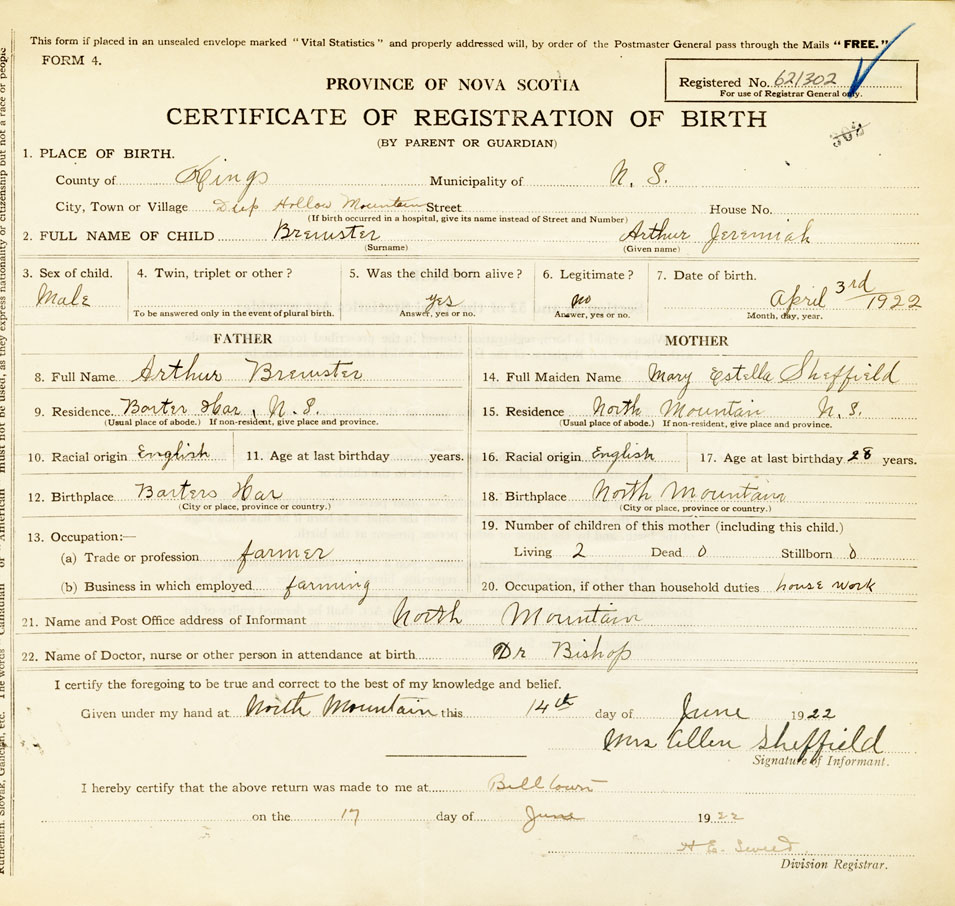 This form if placed in an unsealed envelope marked "Vital Statistics" and properly addressed will, by order of the Postmaster General pass through the Mails "FREE."
FORM 4.
Registered No. 621302
For use of Registrar General only.
PROVINCE OF NOVA SCOTIA
CERTIFICATE OF REGISTRATION OF BIRTH
(BY PARENT OR GUARDIAN)
1. PLACE OF BIRTH.
County of Kings Municipality of N. S.
City, Town or Village Deep Hollow Mountain Street House No.
(If birth occurred in a hospital, give its name instead of Street and Number)
2. FULL NAME OF CHILD Brewster Arthur Jeremiah
(Surname) (Given name)
3. Sex of child. 4. Twin, triplet or other? 5. Was the child born alive? 6. Legitimate? 7. Date of birth.
Male yes no April 3rd 1922
To be answered only in the event of plural birth. Answer, yes or no. Answer, yes or no. Month, day, year.
FATHER
8. Full Name Arthur Brewster
9. Residence. Barter Har, N. S.
(Usual place of abode.) If non-resident, give place and province.
10. Racial origin English 11. Age at last birthday years.
12. Birthplace Barters Har
(City or place, province or country.)
13. Occupation:—
(a) Trade or profession farmer
(b) Business in which employed farming
MOTHER
14. Full Maiden Name Mary Estella Sheffield
15. Residence North Mountain N. S.
(Usual place of abode.) If non-resident, give place and province.
16. Racial origin English 17. Age at last birthday 28 years.
18. Birthplace North Mountain
(City or place, province or country.)
19. Number of children of this mother (including this child.)
Living 2 Dead 0 Stillborn 0
20. Occupation, if other than household duties house work
21. Name and Post Office address of Informant North Mountain
22. Name of Doctor, nurse or other person in attendance at birth Dr Bishop
I certify the foregoing to be true and correct to the best of my knowledge and belief.
Given under my hand at North Mountain this 14th day of June 1922
Mrs Allen Sheffield
Signature of Informant.
I hereby certify that the above return was made to me at Billtown
on the 17 day of June 1922
H. E.
Division Registrar.
must not be used, as they express nationality or citizenship but not a race or people